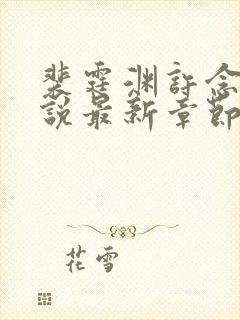 裴霆渊許念
說最新章節
花雪